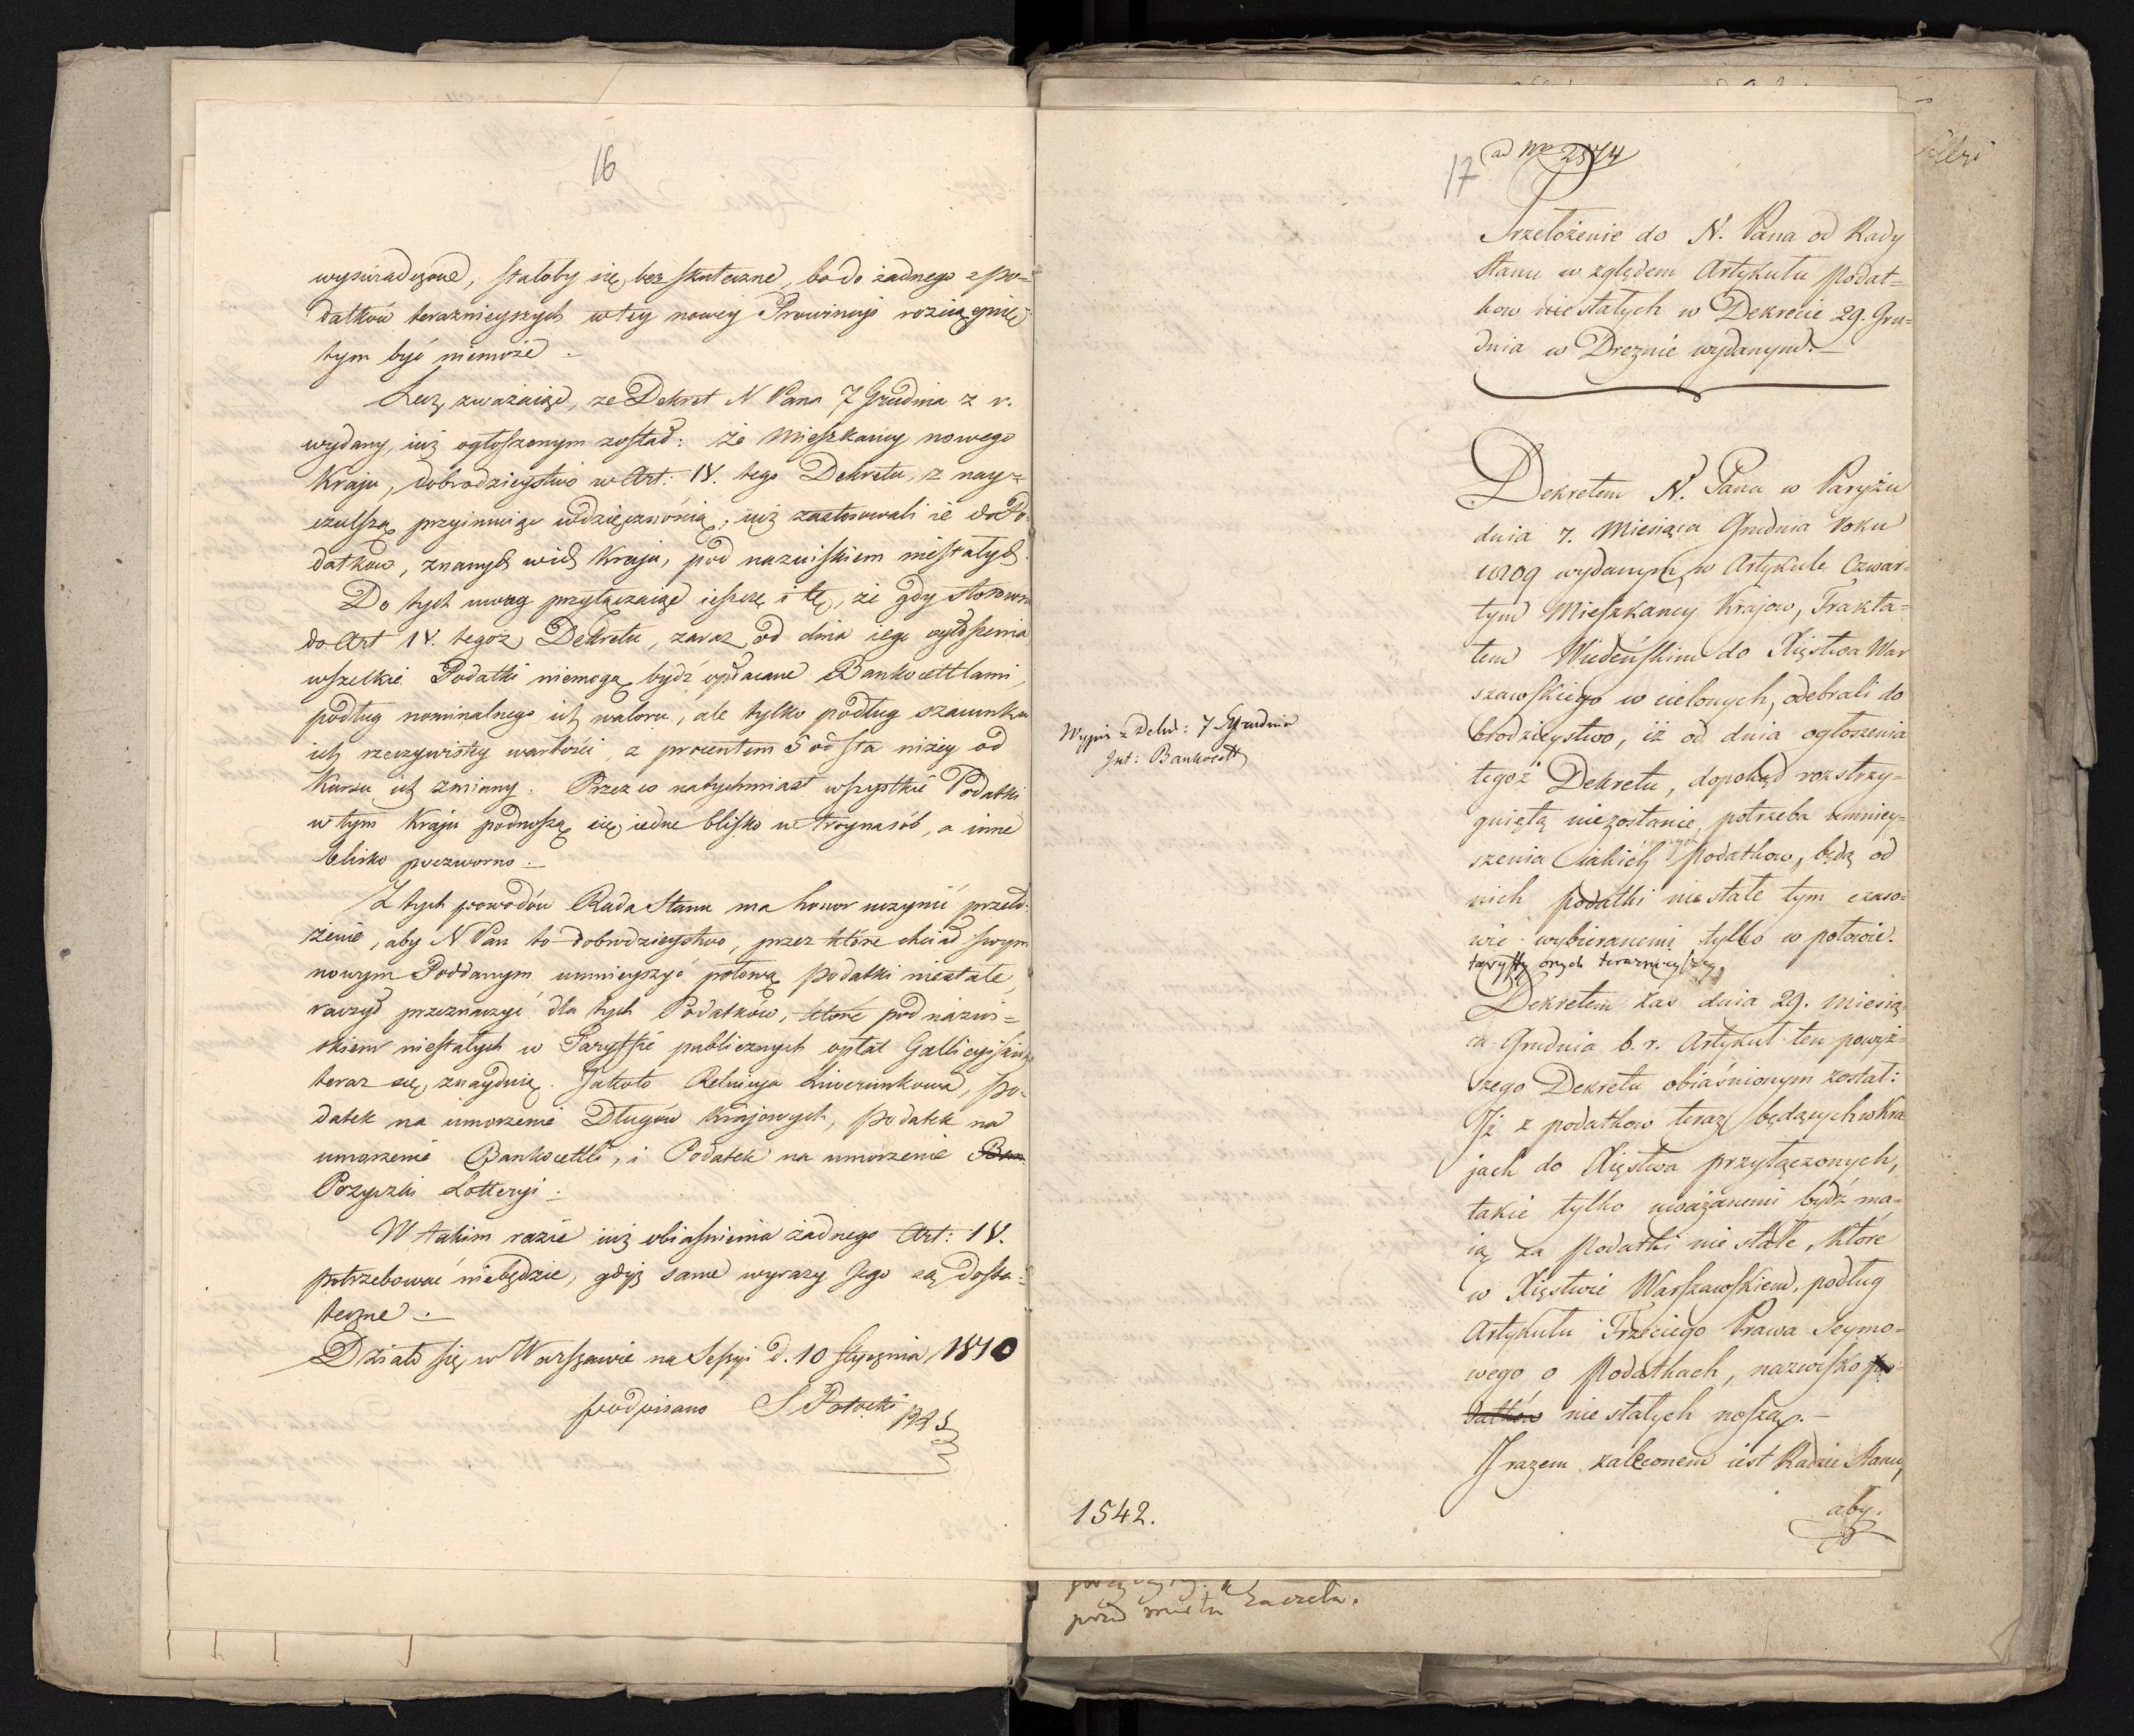 16
wyswiadczone, stałoby się bez skuteczne, bo do żadnego z po=
datków teraznieyszych w tey nowey Prowincyi rozciągnię=
tym być niemoże.
Lecz zważaiąc, ze Dekret N Pana 7 Grudnia z r.
wydany, iuż ogłoszonym został: że Mieszkańcy nowego
Kraju, dobrodzieystwo w Art: IV. tego Dekretu, z nay=
czulszą przyimuiąc wdzięcznością, iuż zastosowali ie do Po=
datków, znanych w ich Kraju, pod nazwiskiem niestałych.
Do tych uwag przyłączaiąc ieszcze i tę, że gdy stosownie
do Art IV. tegoż Dekretu, zaraz od dnia iego ogłoszenia
wszelkie Podatki niemogą bydź opłacane Bankocettlami,
podług nominalnego ich waloru, ale tylko podług szacunku
ich rzeczywistey wartości, z procentem 5 od sta niżey od
Kursu ich zmiany. Przez co natychmiast wszystkie Podatki
w tym Kraju podnoszą się, iedne blisko w troynasób, a inne
blisko poczworno.
Z tych powodów Rada Stanu ma honor uczynić przeło=
żenie, aby N Pan to dobrodzieystwo, przez które chciał swym
nowym Poddanym umnieyszyć połową podatki niestałe,
raczył przeznaczyć dla tych Podatków, które pod nazwi=
skiem niestałych w Taryffie publicznych opłat Gallicyiskich
teraz się znayduią. Jakoto Relucya Liwerunkowa, po=
datek na umorzenie Długów Krajowych, podatek na
umorzenie Bankocettli, i Podatek na umorzenie Ban
Pożyczki Lotteryi.
W takim razie iuż obiaśnienia żadnego Art: IV.
potrzebować niebędzie, gdyż same wyrazy Jego są dosta=
teczne.
Działo się w Warszawie na Sessyi d. 10 Stycznia 1810
podpisano S Potocki PRS
17
ad No 2874
Przełożenie do N. Pana od Rady
Stanu w zględem Artykułu podat=
kow niestałych w Dekrecie 29. Gru=
dnia w Dreznie wydanym.
Dekretem N. Pana w Paryżu
dnia 7. Miesiąca Grudnia roku
1809 wydanym, w Artykule Czwar=
tym Mieszkańcy Krajow, Trakta=
tem Wiedeńskim do Xięstwa War
szawskiego w cielonych, odebrali do
brodzieystwo, iż od dnia ogłoszenia
tegoż Dekretu, dopokąd rozstrzy=
gniętą niezostanie, potrzeba umniey=
szenia iakich podatkow, będą od
nich podatki nie stałe tym czaso=
wie wybieranemi tylko w połowie.
taryffy onych teraznieyszey
Wypis z Dekr: 7 Grudnia
Int: Bankocettl
Dekretem zas dnia 29. miesią
ca Grudnia b. r. Artykuł ten powyż=
szego Dekretu obiaśnionym został:
Iż z podatkow teraz będących w Kra
jach do Xięstwa przyłączonych,
takie tylko uważanemi bydź ma=
ią za podatki nie stałe, które
w Xięstwie Warszawskiem, podług
Artykułu Trzeciego Prawa Seymo=
wego o Podatkach, nazwisko po
datków nie stałych noszą.
I razem zaleconem iest Radzie Stanu,
aby.
1542.
przed Zaczęta.